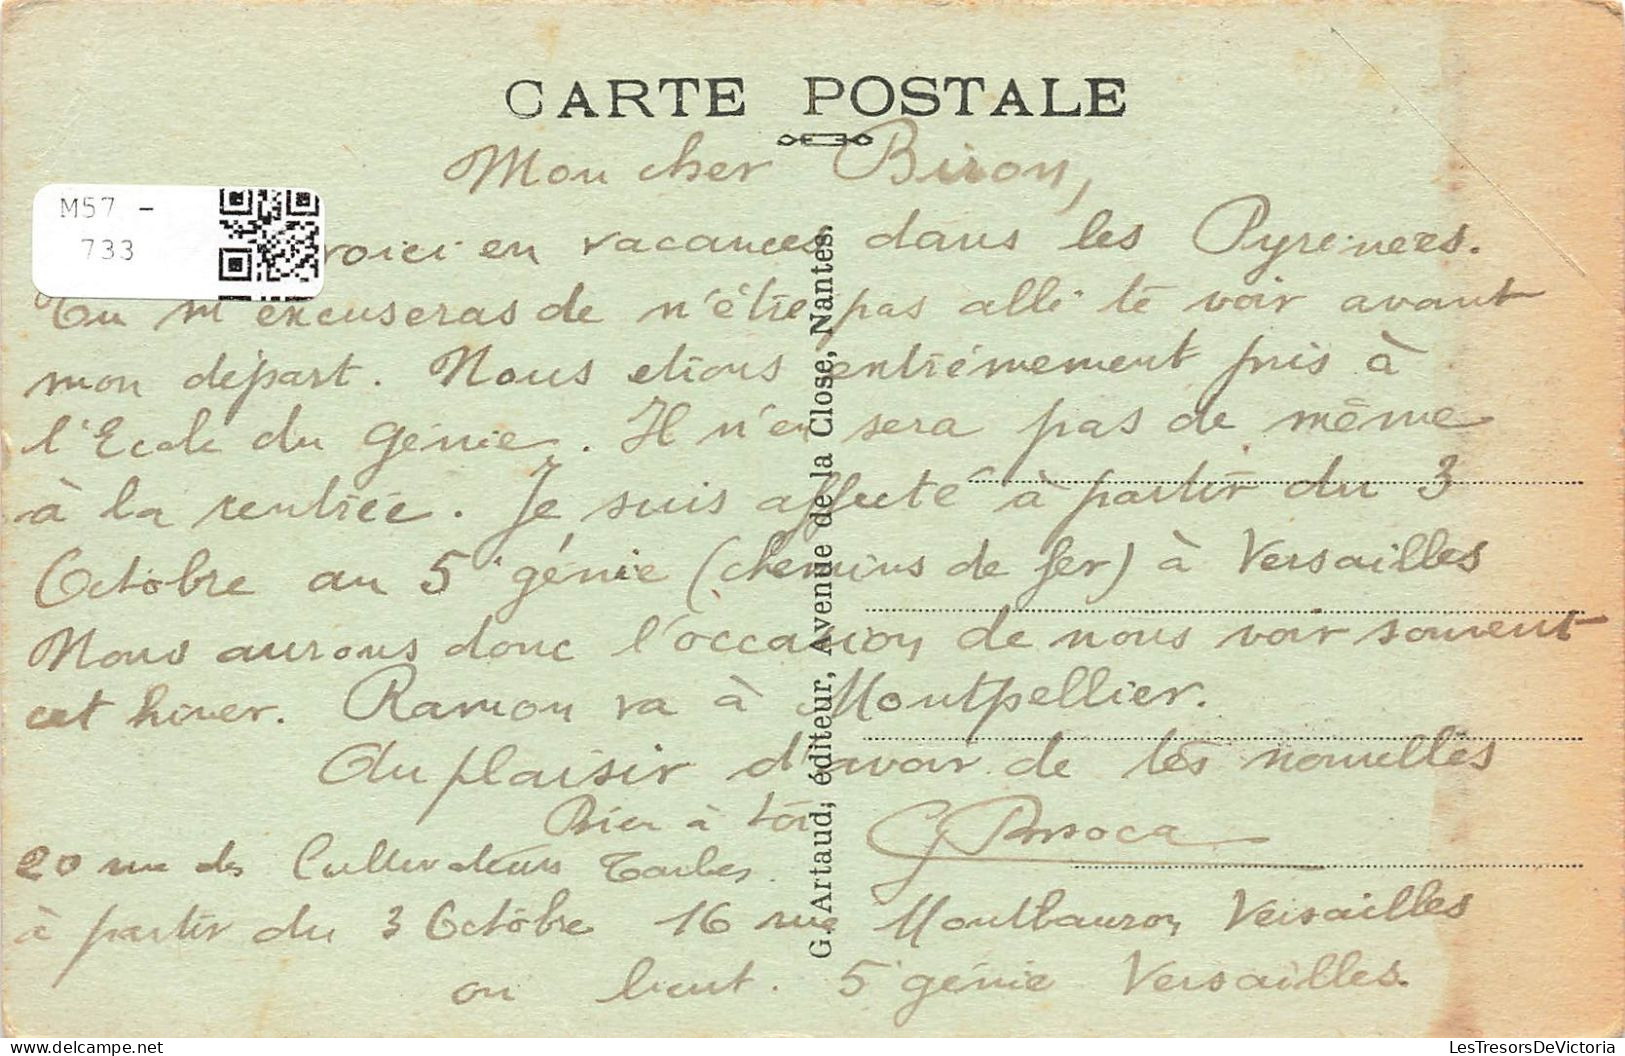 CARTE POSTALE
Mon cher Biron,
M57 -
733
voici en vacances dans les Pyrénées.
Tu m'excuseras de n'être pas allé te voir avant
mon départ. Nous étions extrêmement pris à
l'Ecole du génie. Il n'en sera pas de même
à la rentrée. Je suis affecté à partir du 3
Octobre au 5e génie (chemins de fer) à Versailles
Nous aurons donc l'occasion de nous voir souvent
cet hiver. Ramon va à Montpellier.
Au plaisir d'avoir de tes nouvelles
Bien à toi
20 rue des Cultivateurs Tarbes.
à partir du 3 Octobre 16 rue Montbauron Versailles
ou lieut. 5e génie Versailles.
G. Artaud, éditeur, Avenue de la Close, Nantes.
LesTresorsDeVictoria